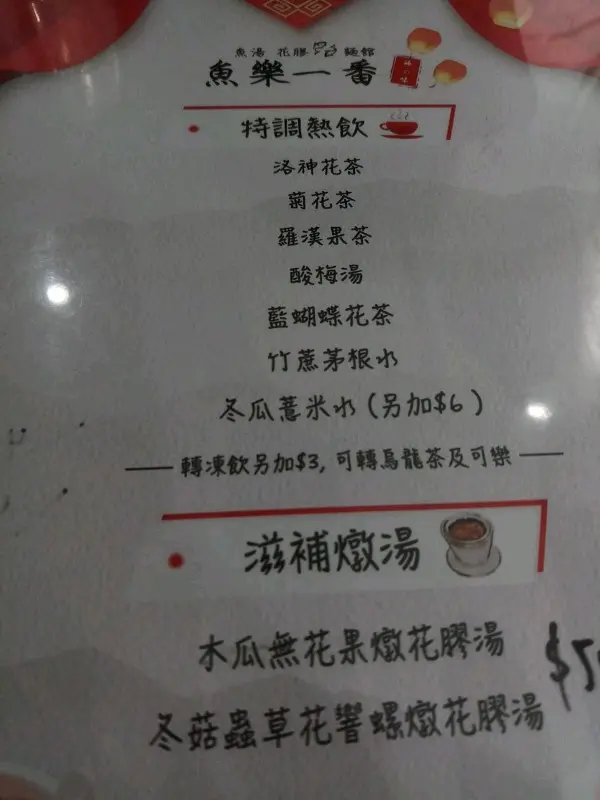 魚湯 花膠 麵館
魚樂一番
特調熱飲
洛神花茶
菊花茶
羅漢果茶
酸梅湯
藍蝴蝶花茶
竹蔗茅根水
冬瓜薏米水(另加$6)
轉凍飲另加$3,可轉烏龍茶及可樂
滋補燉湯
木瓜無花果燉花膠湯
$5
冬菇蟲草花響螺燉花膠湯